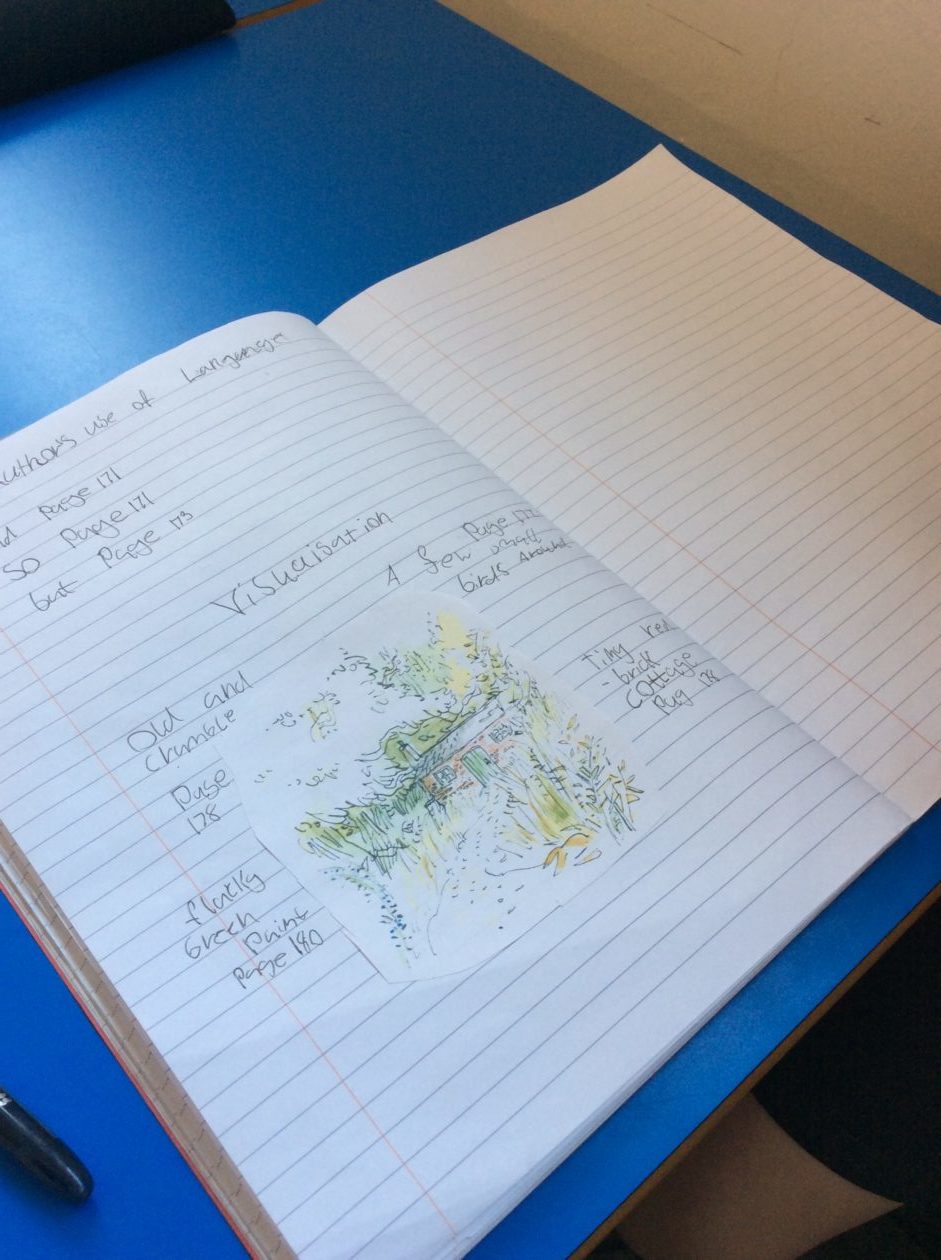 Author's use of Language
Page 171
so Page 171
but Page 173
Visuaisation
Page
A few small
birds Around
Old and
crumble
Page
178
Tiny red
-brick
cottage
Pag 178
flakly
Green
Paint
page 180